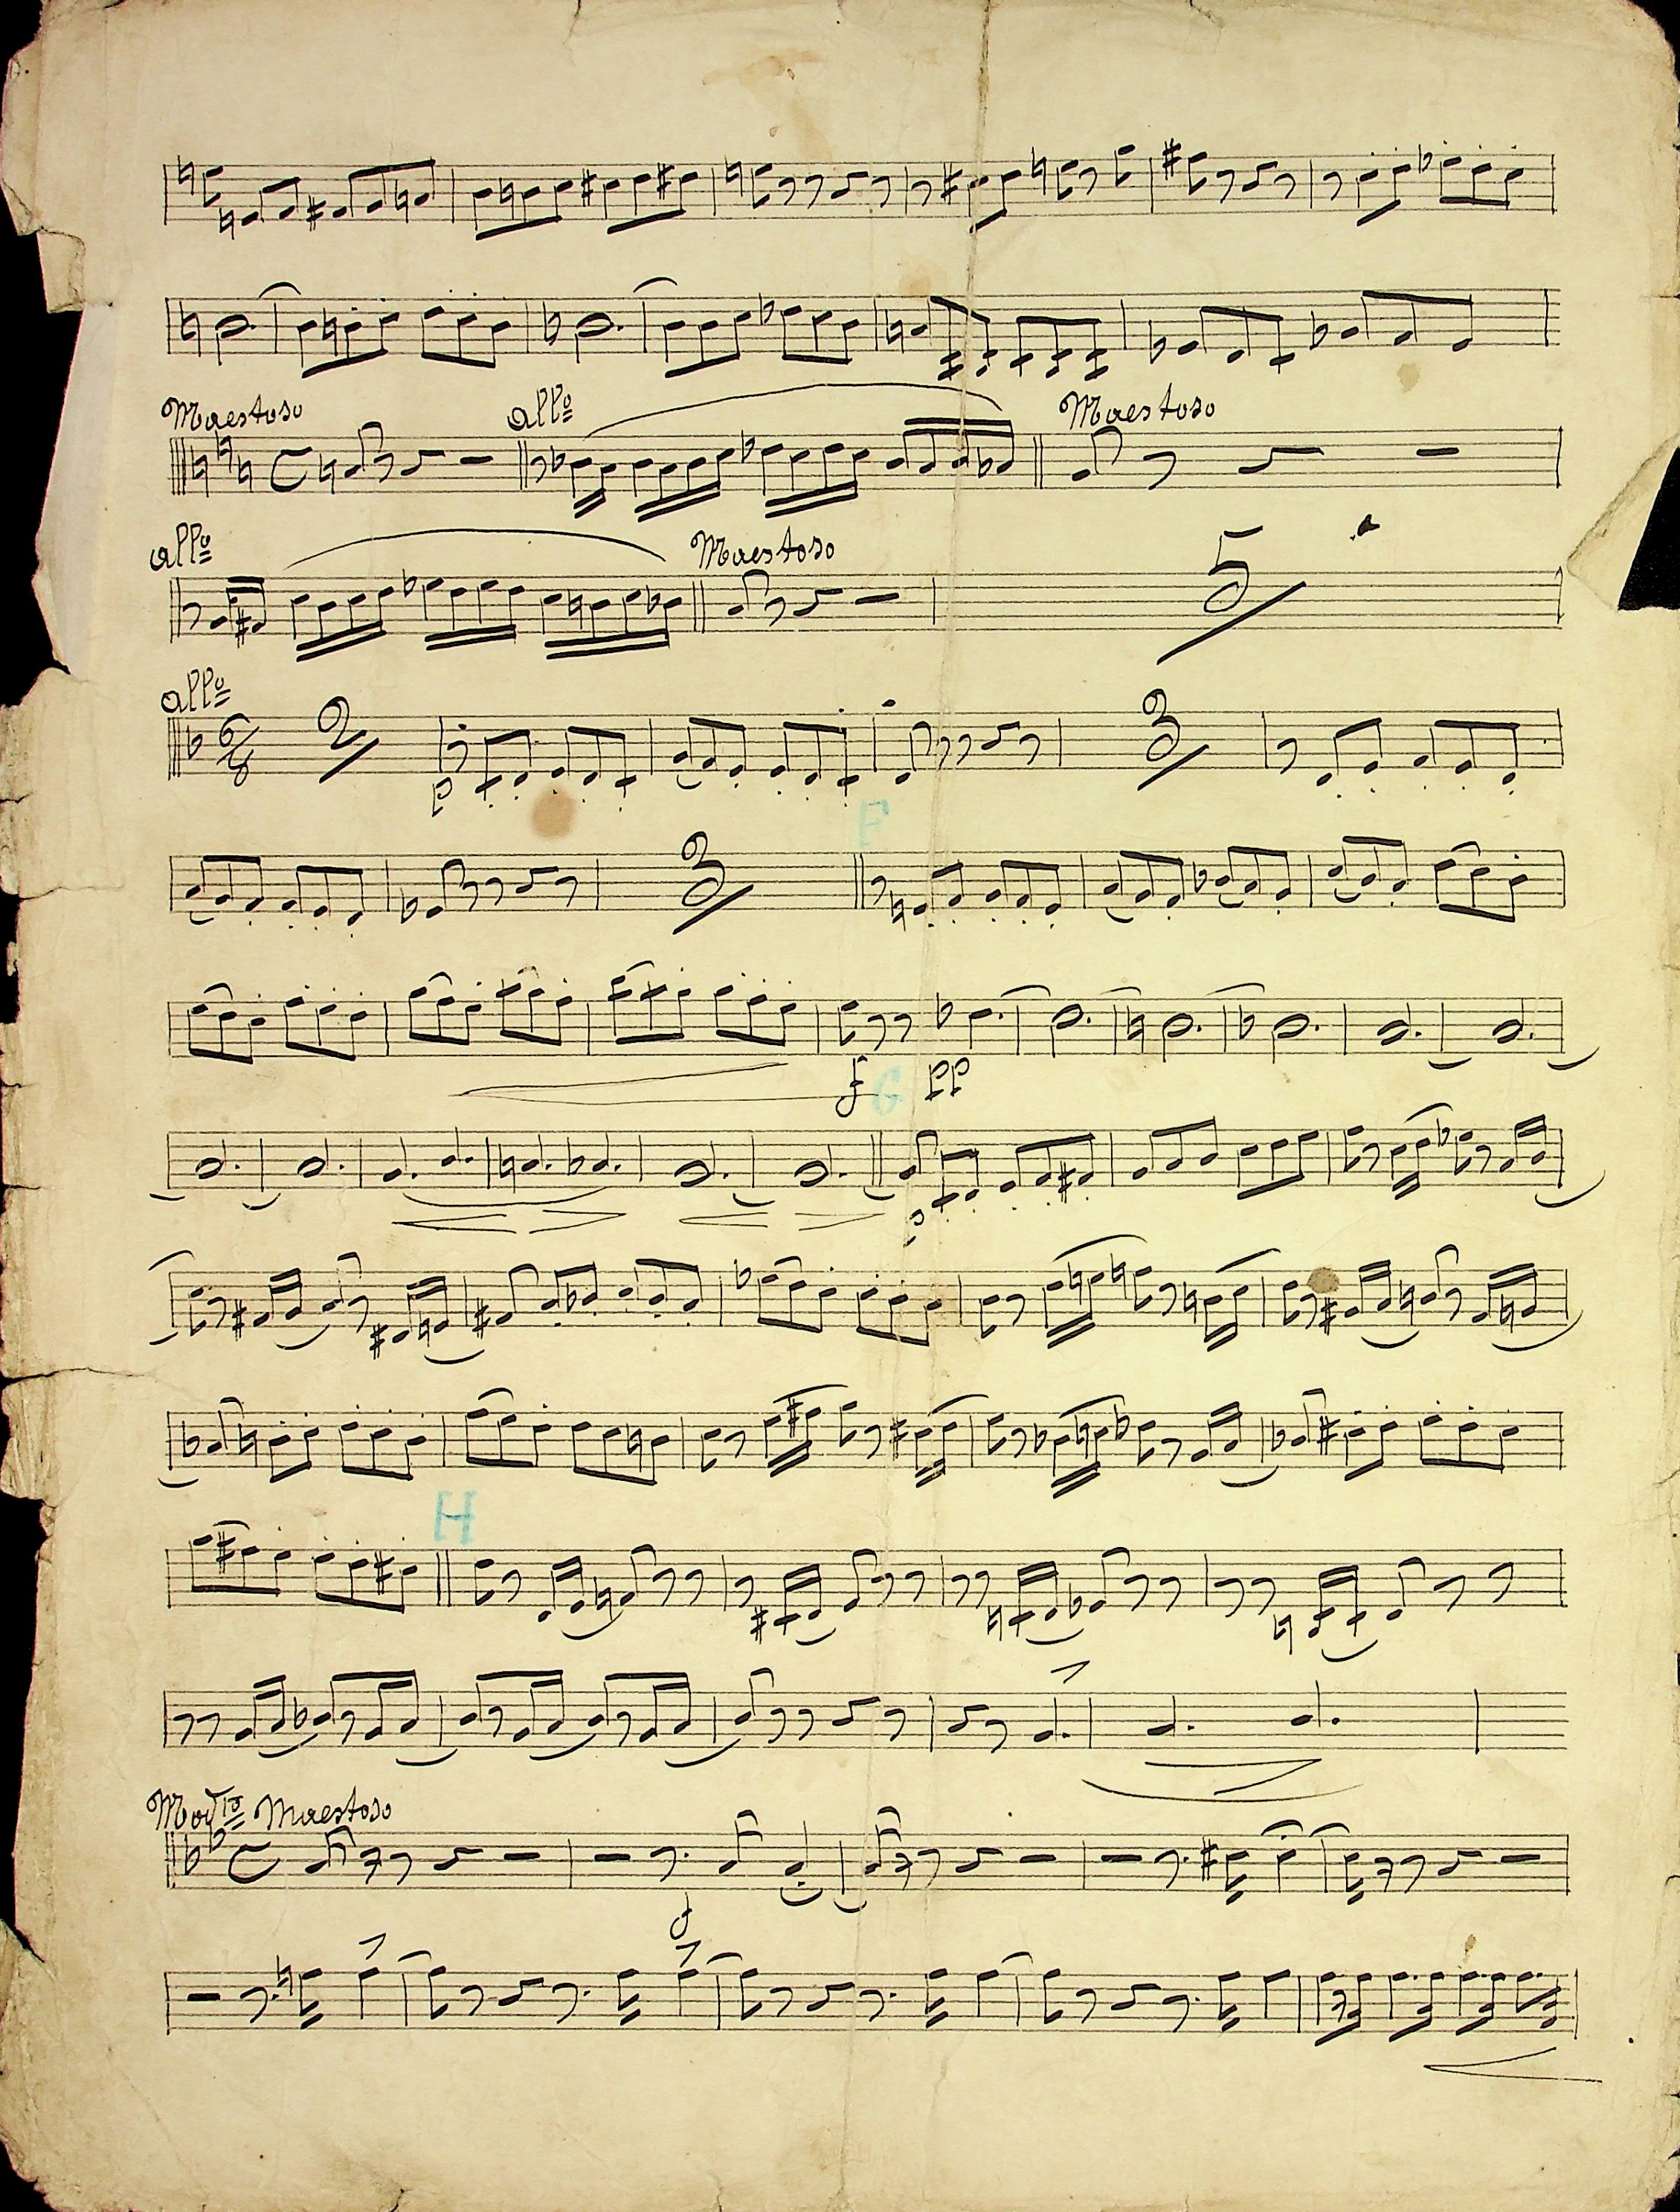 Maestoso allo Maestoso
allo Maestoso
5
allo
6/8 2 3
p
F
3
f G pp
p
H
Modto Maestoso
f